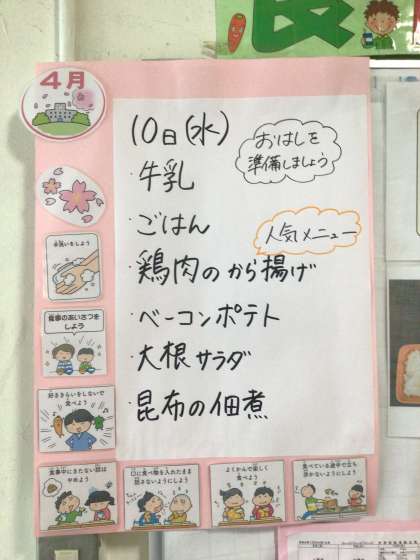 4月
10日(水)
おはしを
準備しましょう
・牛乳
・ごはん
人気メニュー
・鶏肉のから揚げ
・ベーコンポテト
・大根サラダ
・昆布の佃煮
手洗いをしよう
食事のあいさつを
しよう
好ききらいをしないで
食べよう
食事中にきたない話は
やめよう
口に食べ物を入れたまま
話さないようにしよう
よくかんで楽しく
食べよう
食べている途中で立ち
歩かないようにしよう